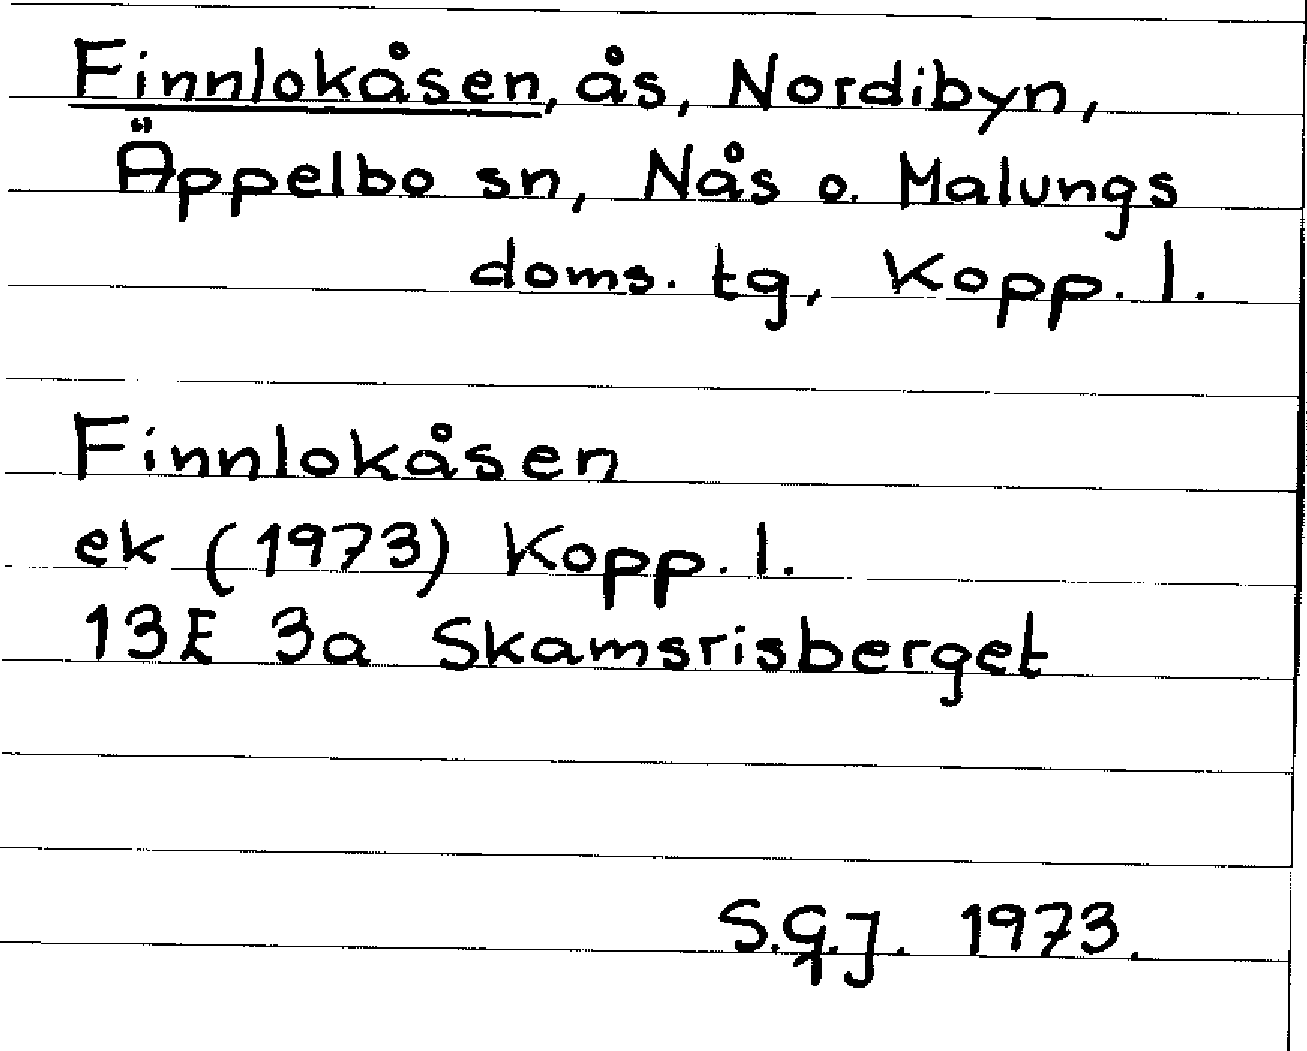 Finnlokåsen, ås, Nordibyn,
Äppelbo sn, Nås o. Malungs
doms. tg, Kopp. l.
Finnlokåsen
ek (1973) Kopp. l.
13E 3a Skamsrisberget
S.G.J. 1973.